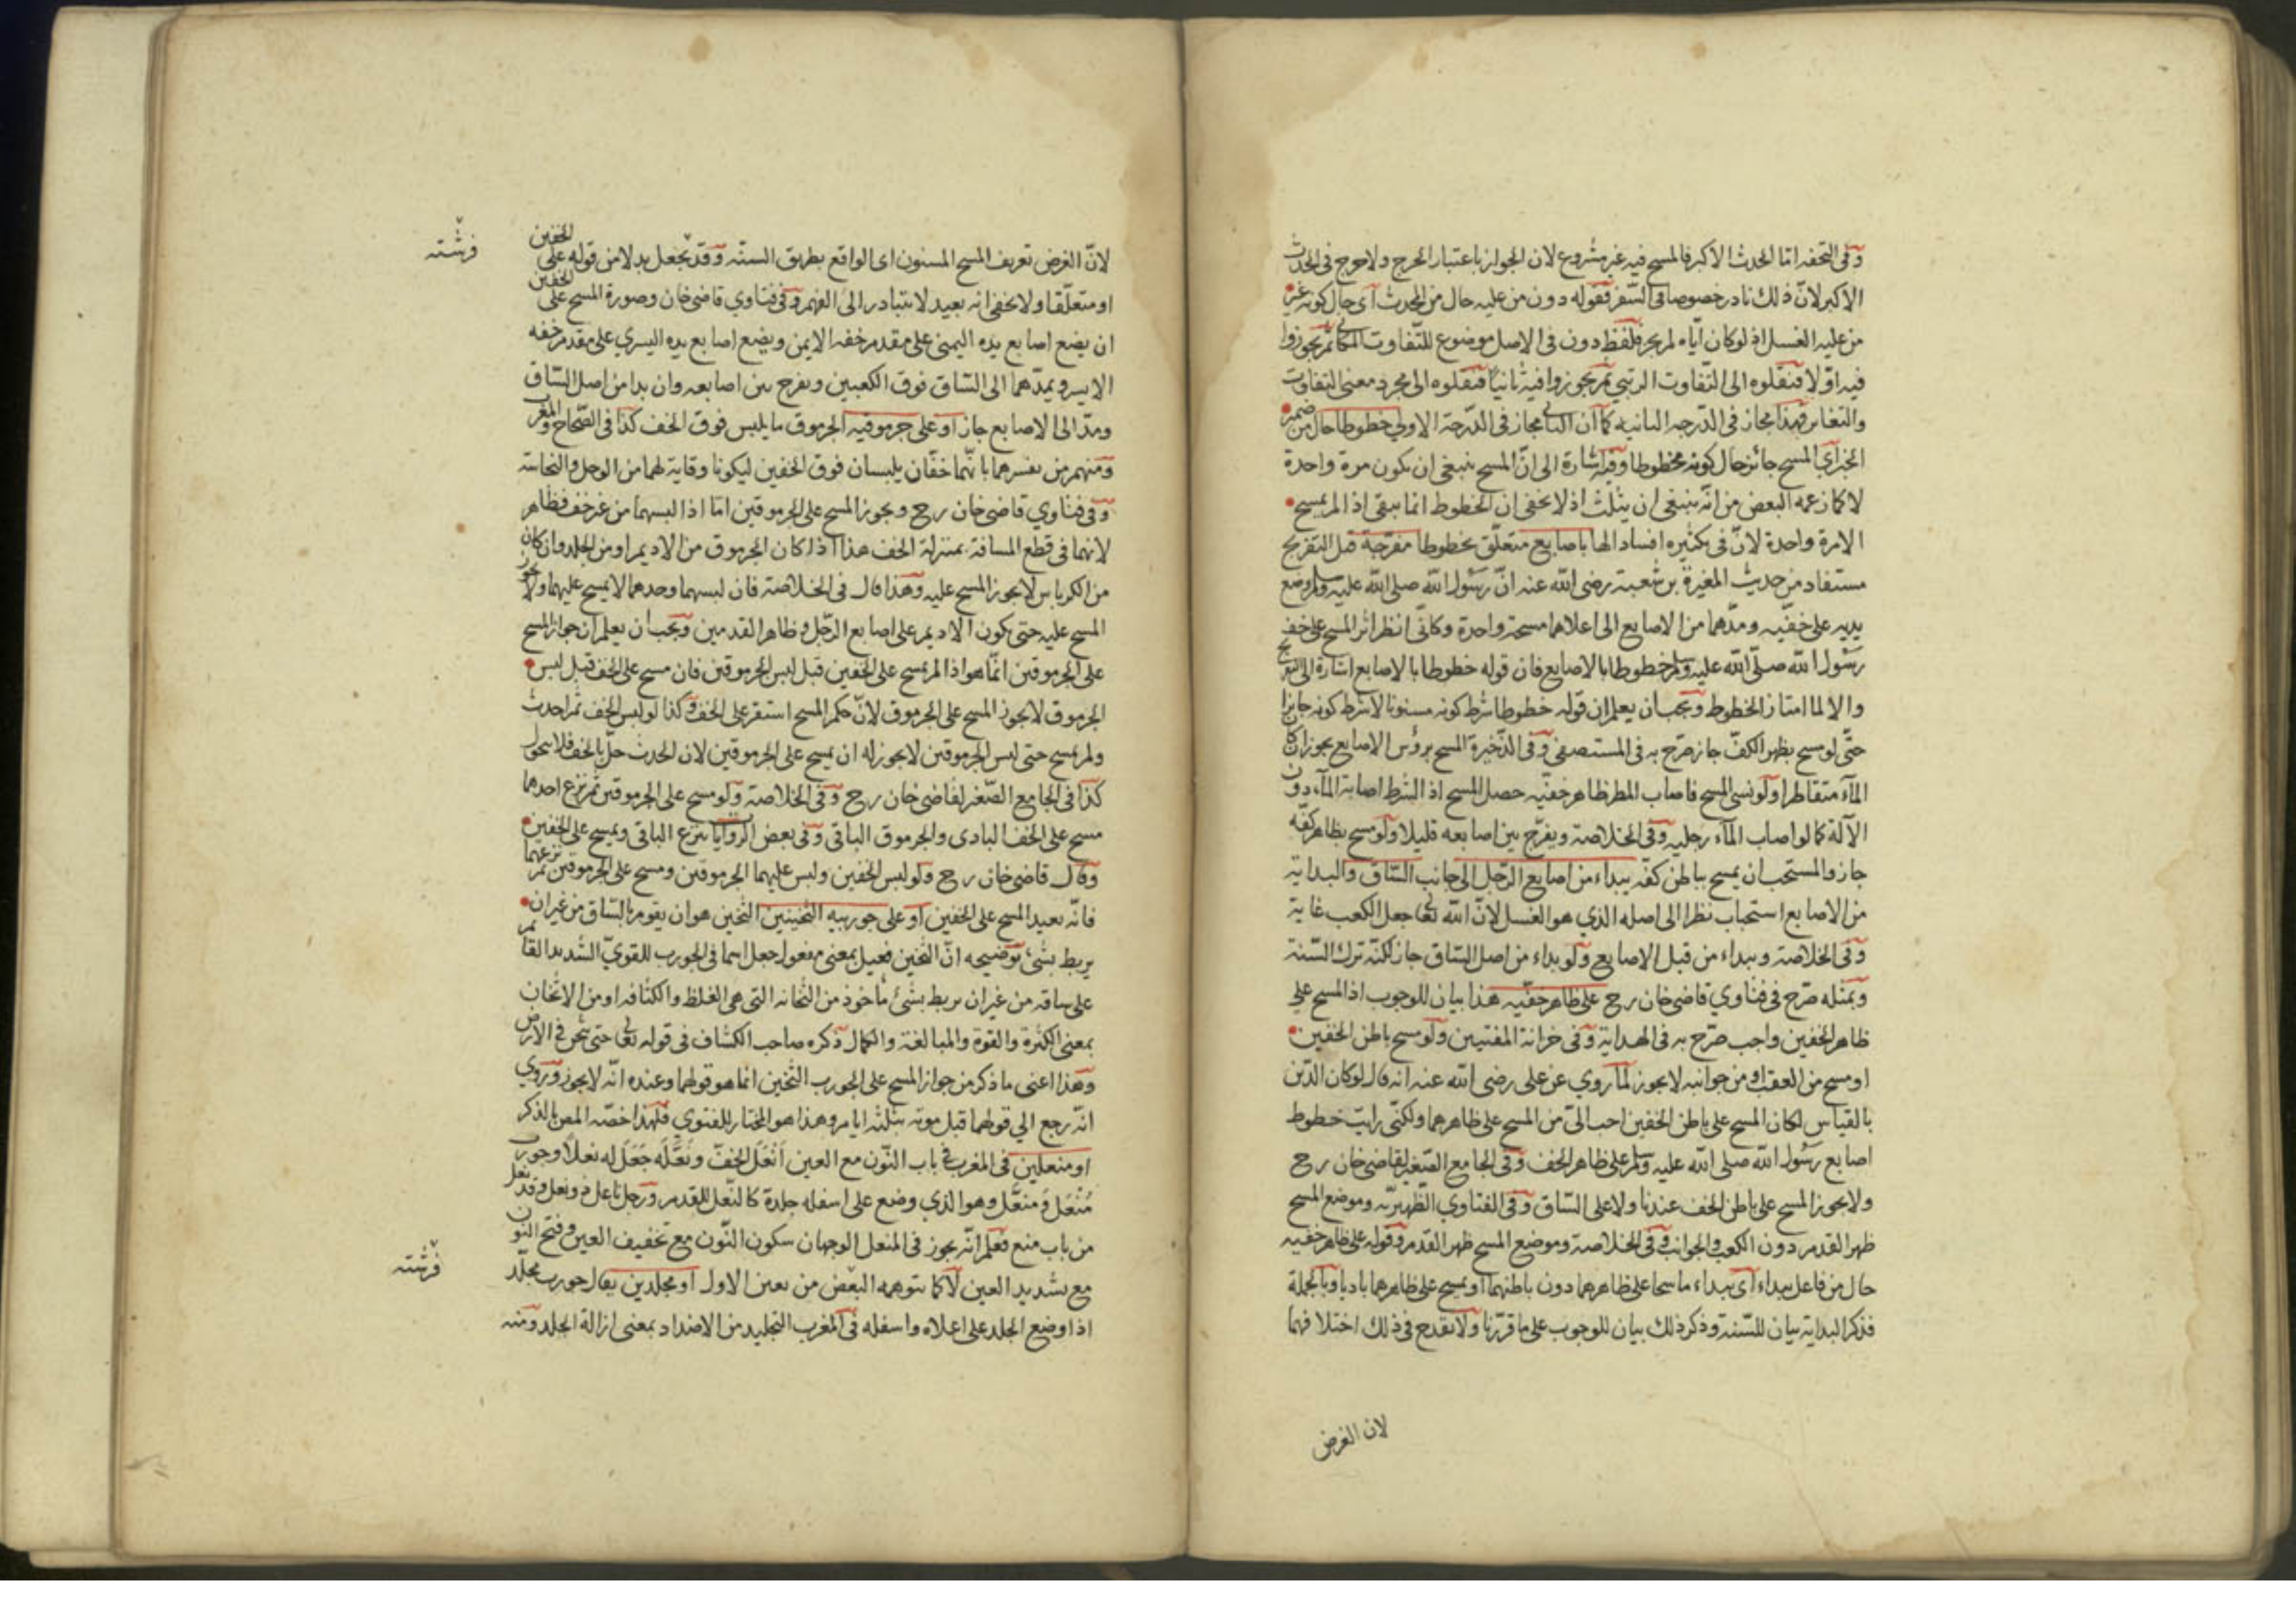 وفى التحفه امّا الحدث الاكبر فالمسح فيه غير مشروع لان الجواز باعتبار الحرج ولا حرج فى الحدث
الاكبر لانّ ذلك نادر خصوصا فى السّفر فقوله دون من عليه حال من المحدث اى حال كونه غير
من عليه الغسل اذ لو كان اياه لم يجز فلفظ دون فى الاصل موضوع للتّفاوت المكانى ثمّ تجوزوا
فيه اوّلا فنقلوه الى التّفاوت الرتبي ثمّ تجوزوا فيه ثانيًا فنقلوه الى مجرد معنى التفاوت
والتغاير فهذا مجاز فى الدّرجه الثانيه كما ان الثانى مجاز فى الدّرجة الاولى خطوطا حال من ضمير
الخبر اى المسح جائز حال كونه مخطوطا وفيه اشارة الى انّ المسح ينبغى ان يكون مرة واحدة
لا كما زعمه البعض من انّه ينبغى ان يثلث اذ لا يخفى ان الخطوط انما يبقى اذا لم يمسح
الا مرة واحدة لانّ فى تكثيره افساد الها باصابع متعلّق بخطوطا مفرّجة قبل التفريج
مستفاد من حديث المغيرة بن شعبة رضى الله عنه انّ رسول الله صلى الله عليه وسلم وضع
يديه على خفّيه ومدّهما من الاصابع الى اعلاهما مسحة واحدة وكانّى انظر اثر المسح على خف
رسول الله صلّى الله عليه وسلم خطوطا بالاصابع فان قوله خطوطا بالاصابع اشارة الى التفريج
والا لما امتاز الخطوط ويجب ان يعلم ان قوله خطوطا شرط كونه مسنونا لا شرط كونه جايزا
حتّى لو مسح بظهر الكفّ جاز صرّح به فى المستصفى وفى الذّخيرة المسح برؤس الاصابع يجوز ان كان
المآء متقاطرا ولو نسى المسح فاصاب المطر ظاهر خفّيه حصل المسح اذ الشرط اصابة المآء دون
الآلة كما لو اصاب المآء رجليه وفى الخلاصة ويفرّج بين اصابعه قليلا ولو مسح بظاهر كفّه
جاز والمستحب ان يمسح بباطن كفّه يبداء من اصابع الرّجل الى جانب السّاق والبداية
من الاصابع استحباب نظرا الى اصله الذي هو الغسل لانّ الله تعالى جعل الكعب غاية
وفى الخلاصة ويبداء من قبل الاصابع ولو بداء من اصل السّاق جاز لكنّه ترك السّنة
وبمثله صرّح فى فتاوي قاضى خان رح على ظاهر خفّيه هذا بيان للوجوب اذ المسح على
ظاهر الخفين واجب صرّح به فى الهداية وفى خزانة المفتيين ولو مسح باطن الخفين
او مسح من العقب او من جوانبه لا يجوز لما روي عن على رضى الله عنه انه قال لو كان الدّين
بالقياس لكان المسح على باطن الخفين احب الىّ من المسح على ظاهرهما ولكنّى رايت خطوط
اصابع رسول الله صلى الله عليه وسلم على ظاهر الخف وفى الجامع الصّغير لقاضى خان رح
ولا يجوز المسح على باطن الخف عندنا ولا على السّاق وفى الفتاوي الظّهيريّه وموضع المسح
ظهر القدم دون الكعب والجوانب وفى الخلاصة وموضع المسح ظهر القدم وقوله على ظاهر خفيه
حال من فاعل يبداء اى يبداء ماسحا على ظاهرهما دون باطنهما او يمسح على ظاهرهما باديا وبالجملة
فذكر البداية بيان للسّنة وذكر ذلك بيان للوجوب على ما قرّرنا ولا يقدح فى ذلك اختلافهما
لان الغرض
لانّ الغرض تعريف المسح المسنون اى الواقع بطريق السنّه وقد يجعل بدلا من قوله على الخفين
او متعلّقا ولا يخفى انه بعيد لا يتبادر الى الفهم وفى فتاوي قاضى خان وصورة المسح على الخفين
ان يضع اصابع يده اليمنى على مقدم خفه الايمن ويضع اصابع يده اليسري على مقدم خفه
الايسر ويمدّهما الى السّاق فوق الكعبين ويفرج بين اصابعه وان بدا من اصل السّاق
ومدّ الى الاصابع جاز او على جرموقيه الجرموق ما يلبس فوق الخف كذا فى الصّحاح والمغرب
ومنهم من يفسرهما بانّهما خفّان يلبسان فوق الخفين ليكونا وقاية لهما من الوحل والنجاسة
وفى فتاوي قاضى خان رح ويجوز المسح على الجرموقين امّا اذا لبسهما من غير خف فظاهر
لانهما فى قطع المسافة بمنزلة الخف هذا اذا كان الجرموق من الاديم او من الجلد وان كان
من الكرباس لا يجوز المسح عليه وهذا قال فى الخلاصة فان لبسهما وحدهما لا يمسح عليهما ولا يجوز
المسح عليه حتى يكون الاديم على اصابع الرّجل وظاهر القدمين ويجب ان يعلم ان جواز المسح
على الجرموقين انّما هو اذا لم يمسح على الخفين قبل لبس الجرموقين فان مسح على الخف قبل لبس
الجرموق لا يجوز المسح على الجرموق لانّ حكم المسح استقر على الخف وكذا لو لبس الخف ثم احدث
ولم يمسح حتى لبس الجرموقين لا يجوز له ان يمسح على الجرموقين لان الحدث حلّ بالخف فلا يتحول
كذا فى الجامع الصّغير لقاضى خان رح وفى الخلاصة ولو مسح على الجرموقين ثم نزع احدهما
مسح على الخف البادى والجرموق الباقى وفى بعض الروايات ينزع الباقى ويمسح على الخفين
وقال قاضى خان رح ولو لبس الخفين ولبس عليهما الجرموقين ومسح على الجرموقين ثم نزعهما
فانّه يعيد المسح على الخفين او على جوربيه الثخينين الثخين هو ان يقوم بالسّاق من غير ان
يربط بشئ توضيحه انّ الثخين فعيل بمعنى مفعول جعل اسما فى الجورب للقويّ الشديد القائم
على ساقه من غير ان يربط بشئ مأخوذ من الثخانه التى هى الغلظ والكثافه او من الاثخان
بمعنى الكثرة والقوة والمبالغة والكمال ذكره صاحب الكشاف فى قوله تعالى حتى يثخن فى الارض
وهذا اعنى ما ذكر من جواز المسح على الجورب الثخين انما هو قولهما وعنده انّه لا يجوز وروي
انّه رجع الي قولهما قبل موته بثلثة ايام وهذا هو المختار للفتوي فلهذا خصّه المص بالذكر
او منعلين فى المغرب فى باب النّون مع العين اَنْعَلَ الخفّ ونَعَّلَه جَعَلَ له نعلًا وجورب
مُنْعَل ومنعّل وهو الذي وضع على اسفله جلدة كالنّعل للقدم ورجل ناعل ذو نعل وقد نعل
من باب منع فعلم انّه يجوز فى المنعل الوجهان سكون النّون مع تخفيف العين وفتح النّون
مع تشديد العين لا كما يتوهمه البعض من تعين الاول او مجلدين يقال جورب مجلّد
اذا وضع الجلد على اعلاه واسفله فى المغرب التجليد من الاضداد بمعنى ازالة الجلد ومنه
فرشته
فرشته